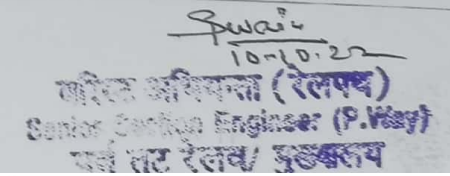 Swain
10-10.22
वरिष्ठ अभियन्ता (रेलपथ)
Senior Section Engineer (P.Way)
पूर्व तट रेलवे/ मुख्यालय